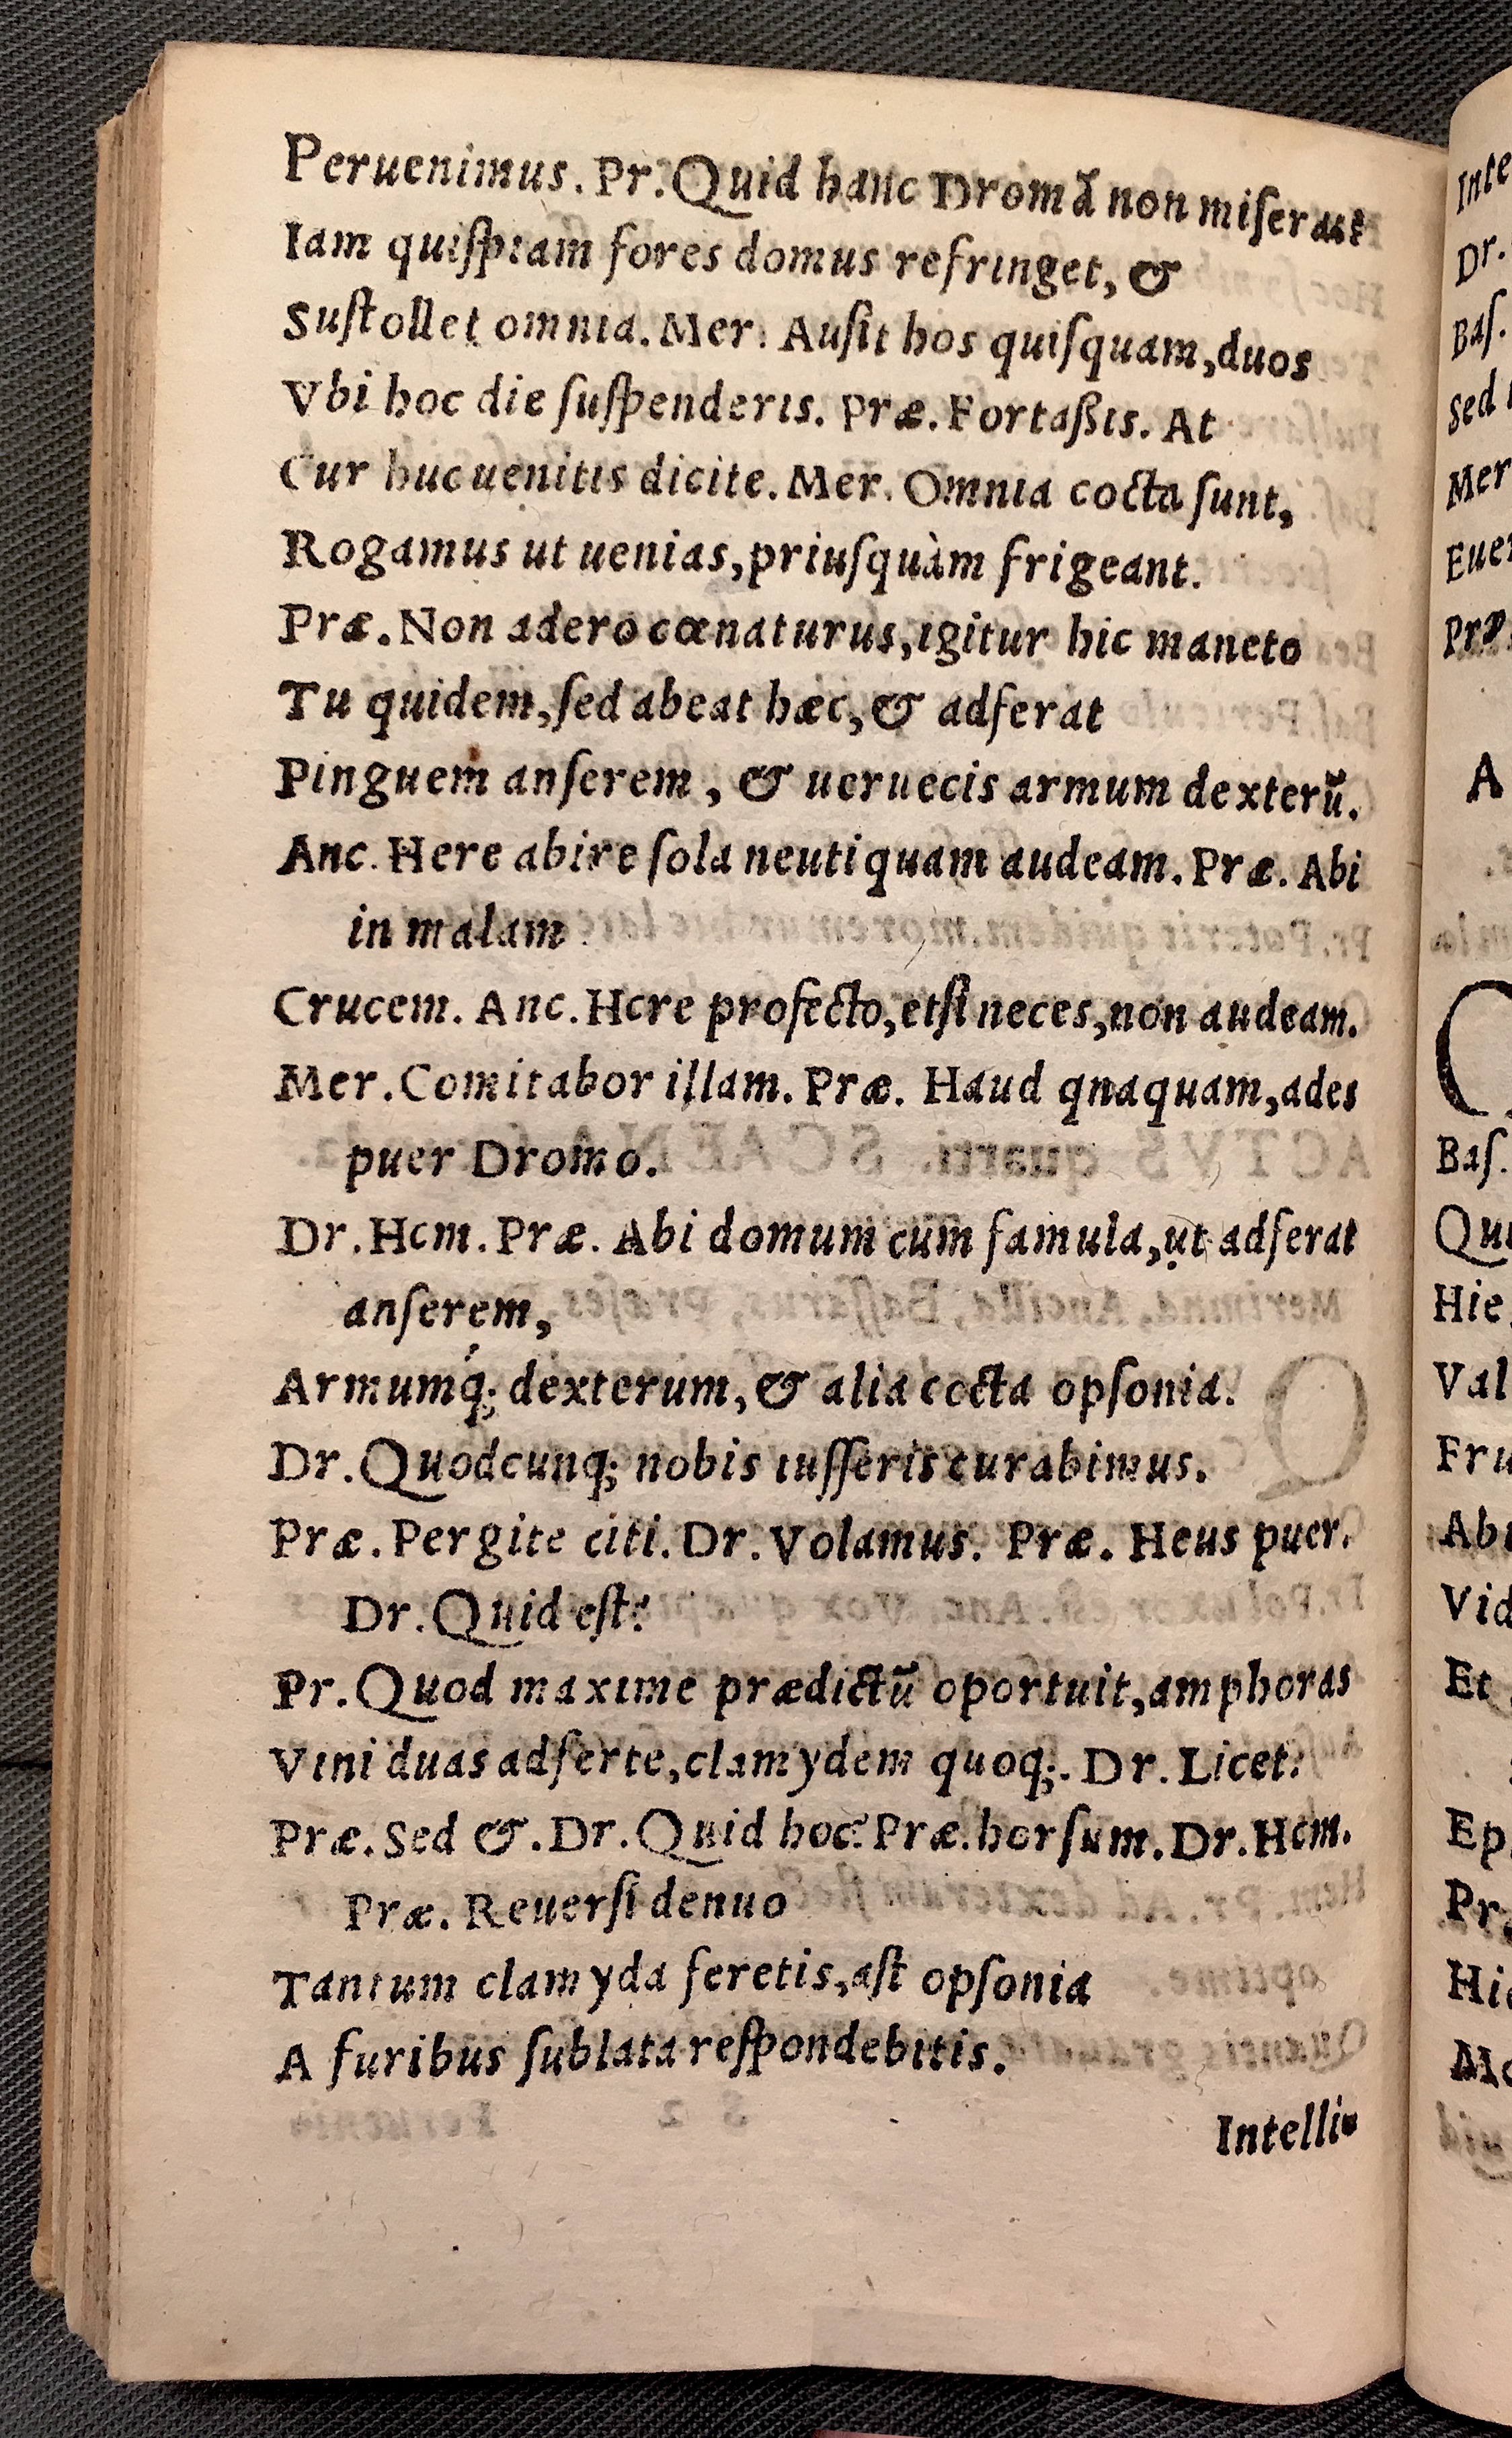 Peruenimus. Pr. Quid hanc Dromā non miserast
Iam quispiam fores domus refringet, &
Sustollet omnia. Mer. Ausit hos quisquam, duos
Vbi hoc die suspenderis. Præ. Fortaßis. At
Cur huc uenitis dicite. Mer. Omnia cocta sunt,
Rogamus ut uenias, priusquàm frigeant.
Præ. Non adero cœnaturus, igitur hic maneto
Tu quidem, sed abeat hæc, & adferat
Pinguem anserem, & ueruecis armum dexterū.
Anc. Here abire sola neutiquam audeam. Præ. Abi
in malam
Crucem. Anc. Here profecto, etsi neces, non audeam.
Mer. Comitabor illam. Præ. Haud qnaquam, ades
puer Dromo.
Dr. Hem. Præ. Abi domum cum famula, ut adferat
anserem,
Armumq́; dexterum, & alia cocta opsonia.
Dr. Quodcunq; nobis iusseris curabimus.
Præ. Pergite citi. Dr. Volamus. Præ. Heus puer.
Dr. Quid est?
Pr. Quod maxime prædictū oportuit, amphoras
Vini duas adferte, clamydem quoq;. Dr. Licet.
Præ. Sed &. Dr. Quid hoc? Præ. horsum. Dr. Hem.
Præ. Reuersi denuo
Tantum clamyda feretis, ast opsonia
A furibus sublata respondebitis.
Intelli-
Dr.
Bas.
Mer
Præ
A
Bas.
Hie
Val
Fru
Abi
Vid
Et
Ep